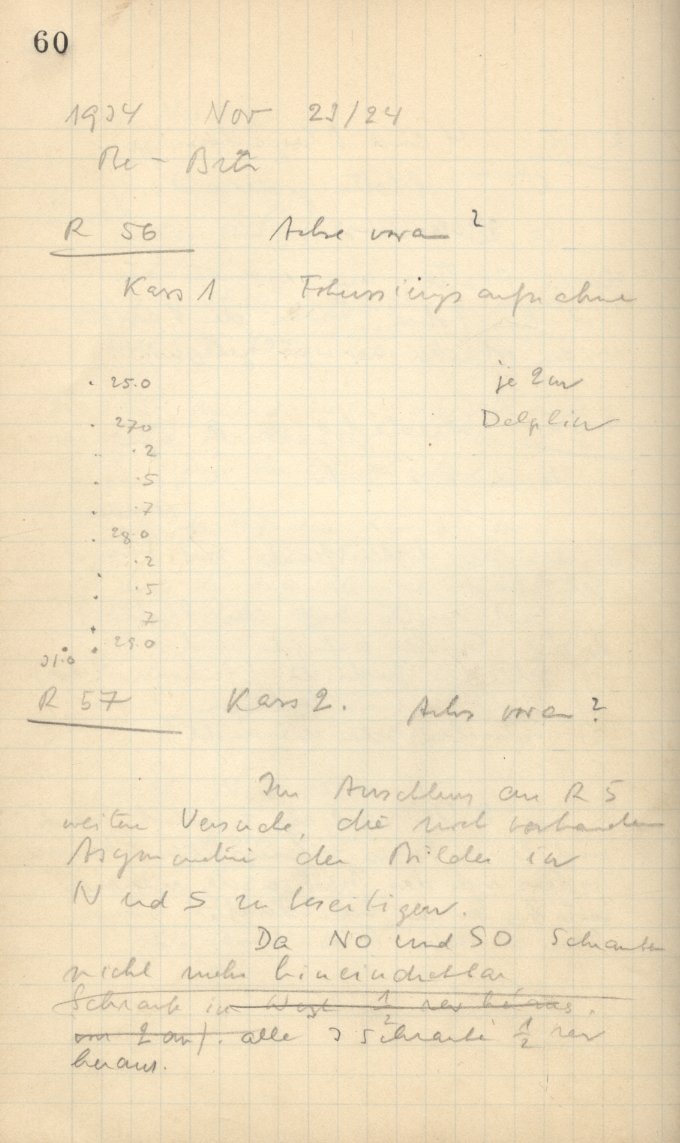 60
1934 Nov 23/24
Be - Bttr
R 56 Achse voran ?
Kass 1 Fokussierungsaufnahme
25.0 je 2 m
27.0 Delphin
.2
.5
.7
28.0
.2
.5
7
29.0
31.0
R 57 Kass 2. Achse voran ?
Im Anschluss an R 5
weitere Versuche, die noch vorhandene
Asymmetrie der Bilder in
N und S zu beseitigen.
Da NO und SO Schrauben
nicht mehr hineindrehbar
Schraube in West 1/2 rev heraus,
2 alle 3 Schraube 1/2 rev
heraus.